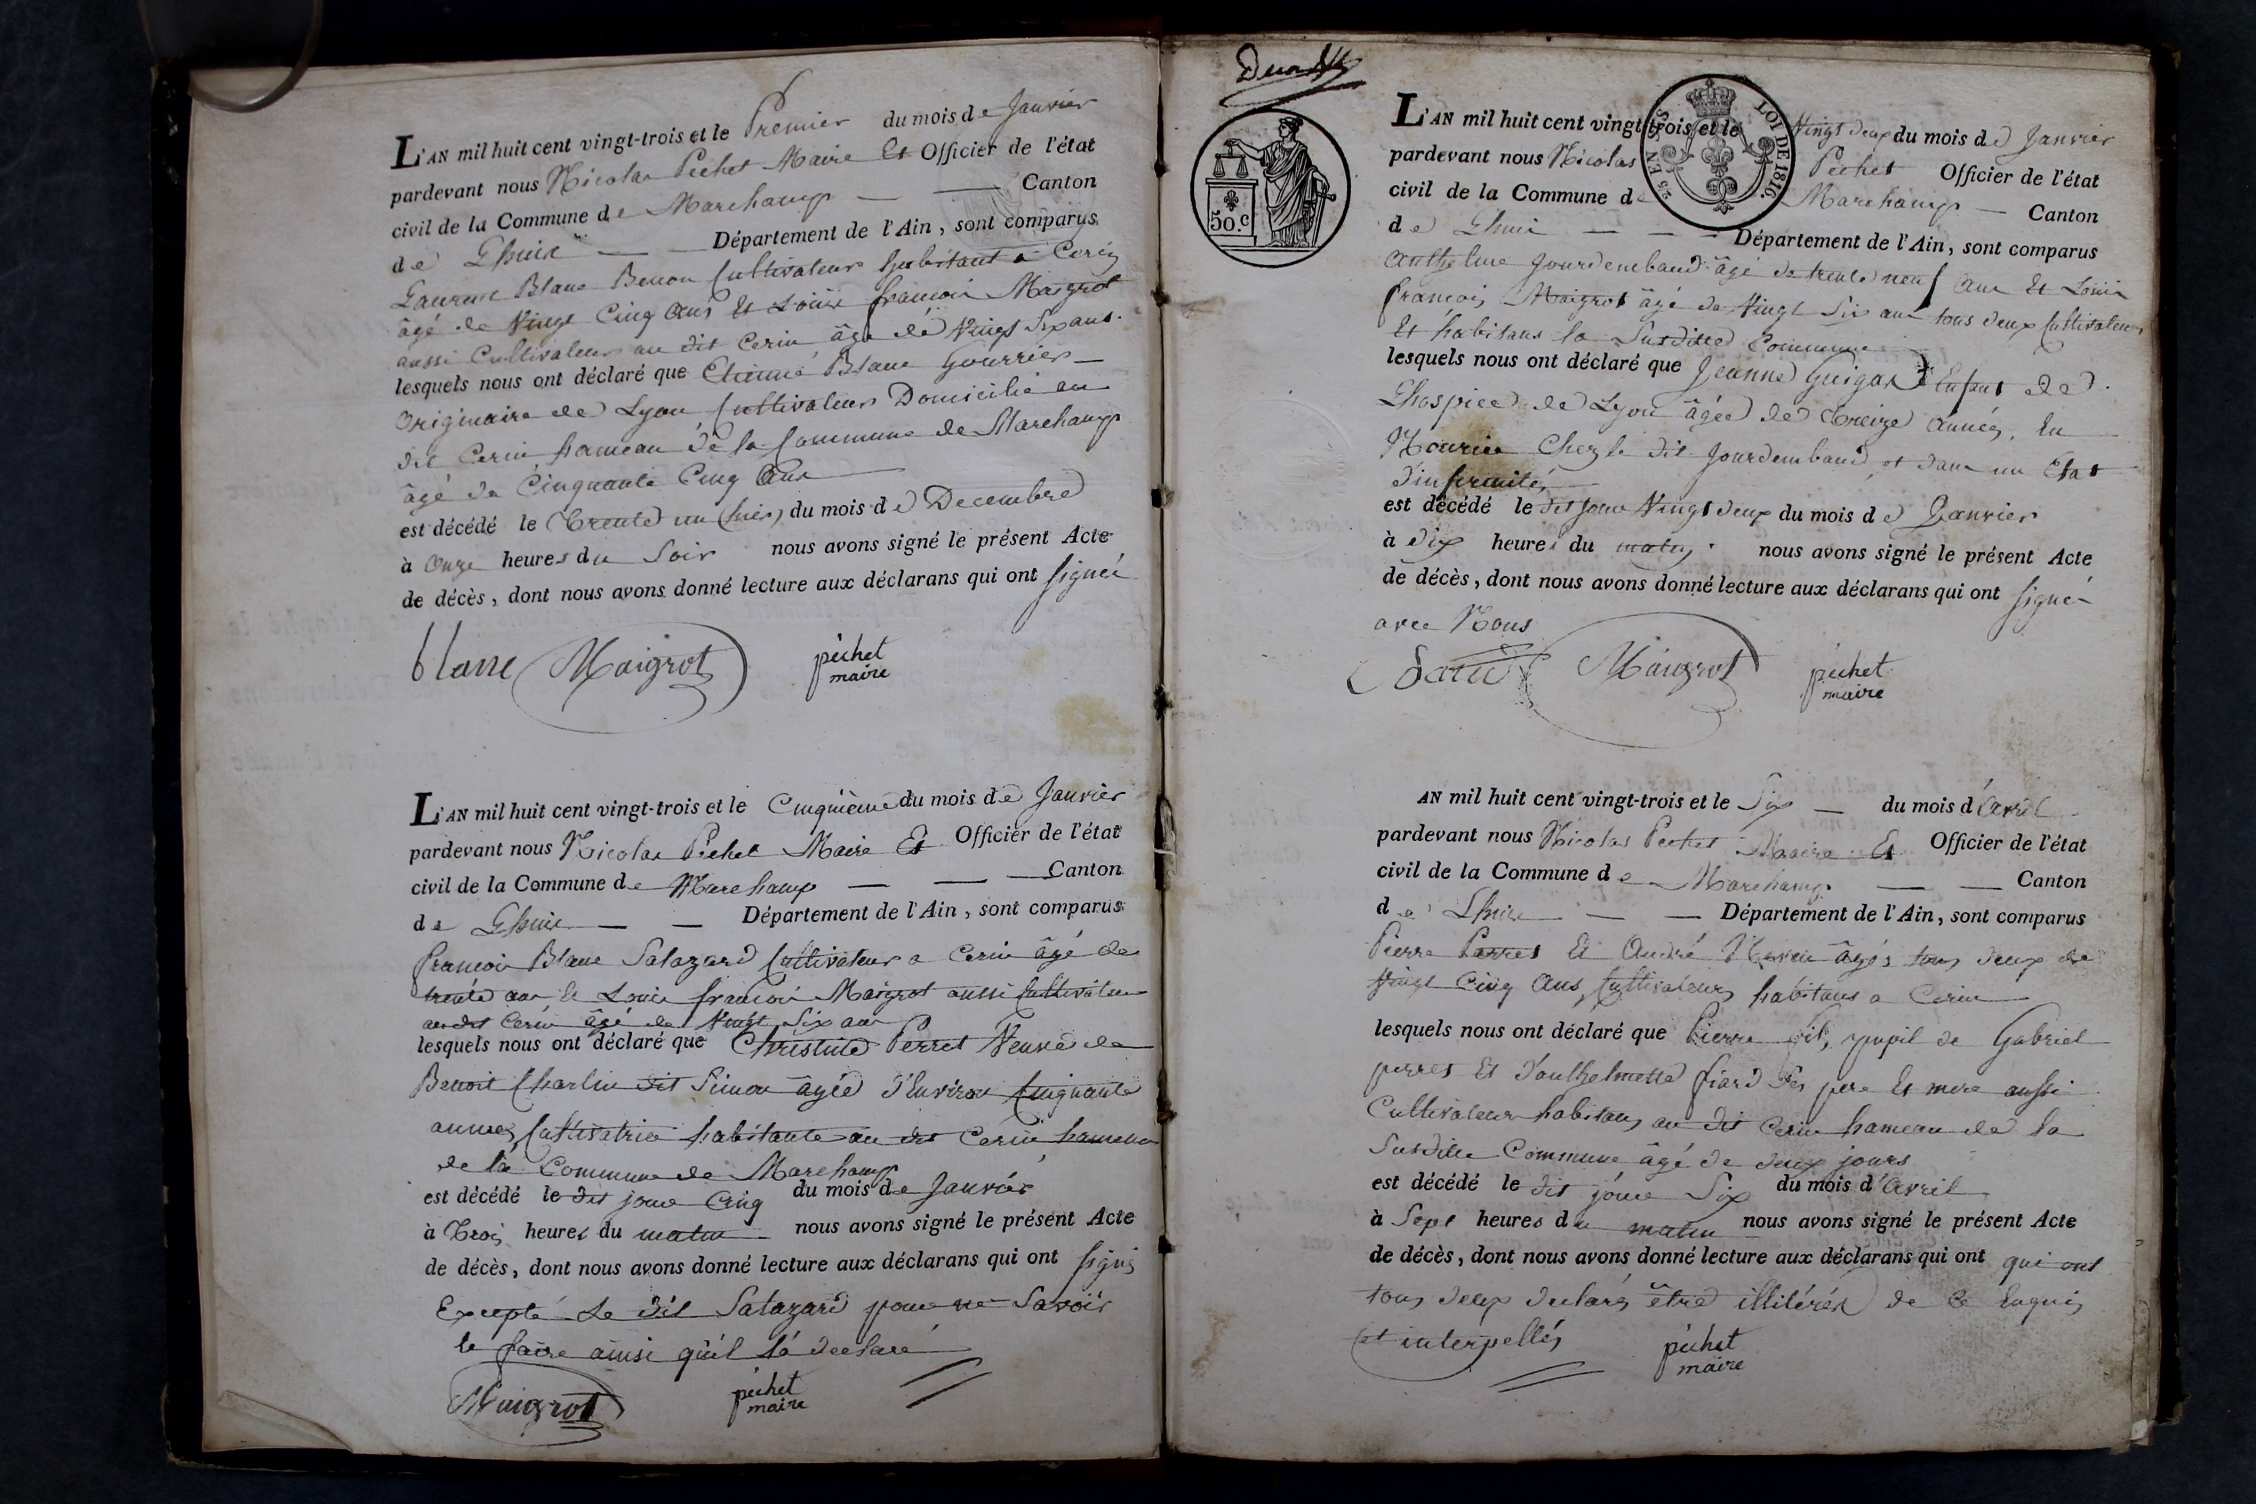 L'AN mil huit cent vingt-trois et le Premier du mois de Janvier
pardevant nous Nicolas Pechet Maire Et Officier de l'état
civil de la Commune de Marchamp Canton
de Lhuis Département de l'Ain, sont comparus
Laurent Blanc Benon Cultivateur habitant a Cerin
âgé de Vingt Cinq Ans Et Louis françois Maigrot
aussi Cultivateur au dit Cerin âgé de Vingt Six ans.
lesquels nous ont déclaré que Etienne Blanc Gourrier
Originaire de Lyon Cultivateur Domicilié au
dit Cerin hameau de la Commune de Marchamp
âgé de Cinquante Cinq Ans
est décédé le Trente un (hier) du mois de Decembre
à Onze heures du Soir nous avons signé le présent Acte
de décès, dont nous avons donné lecture aux déclarans qui ont signé
blanc Maigrot péchet
maire
L'AN mil huit cent vingt-trois et le Cinquième du mois de Janvier
pardevant nous Nicolas Pechet Maire Et Officier de l'état
civil de la Commune de Marchamp Canton
de Lhuis Département de l'Ain, sont comparus
françois Blanc Salazard Cultivateur a Cerin âgé de
trente ans Et Louis françois Maigrot aussi Cultivateur
audit Cerin âgé de Vingt Six ans
lesquels nous ont déclaré que Christine Perret Veuve de
Benoit Charlin dit Simon âgée d'Environ Cinquante
années Cultivatrice habitante au dit Cerin hameau
de la Commune de Marchamp
est décédé le dit jour Cinq du mois de Janvier
à Trois heures du matin nous avons signé le présent Acte
de décès, dont nous avons donné lecture aux déclarans qui ont signé
Excepté Le dit Salazard pour ne Savoir
le faire ainsi qu'il l'a declaré
Maigrot péchet
maire
50.c
25 EN SUS LOI DE 1816.
L'AN mil huit cent vingt-trois et le Vingt deux du mois de Janvier
pardevant nous Nicolas Pechet Officier de l'état
civil de la Commune de Marchamp Canton
de Lhuis Département de l'Ain, sont comparus
Anthelme Jourdembaud âgé de trente neuf Ans Et Louis
françois Maigrot âgé de Vingt Six ans tous deux Cultivateurs
Et habitans la Susditte Commune
lesquels nous ont déclaré que Jeanne Guigard Enfant de
Lhospice de Lyon âgée de Treize Années, En
Nourice Chez le dit Jourdembaud et dans un Etat
d'infirmités
est décédé le dit jour Vingt deux du mois de Janvier
à dix heures du matin nous avons signé le présent Acte
de décès, dont nous avons donné lecture aux déclarans qui ont signé
avec Nous
Maigrot péchet
maire
AN mil huit cent vingt-trois et le Six du mois d'Avril
pardevant nous Nicolas Pechet Maire Et Officier de l'état
civil de la Commune de Marchamp Canton
de Lhuis Département de l'Ain, sont comparus
Pierre Perret Et André âgés tous deux de
Vingt Cinq Ans Cultivateurs habitans a Cerin
lesquels nous ont déclaré que Pierre fils pupil de Gabriel
perret Et D'anthelmette fiard Ses pere Et mere aussi
Cultivateur habitans au dit Cerin hameau de la
Susditte Commune âgé de deux jours
est décédé le dit jour Six du mois d'Avril
à Sept heures du matin nous avons signé le présent Acte
de décès, dont nous avons donné lecture aux déclarans qui ont qui ont
tous deux declarés être illitérés de ce Enquis
et interpellés péchet
maire